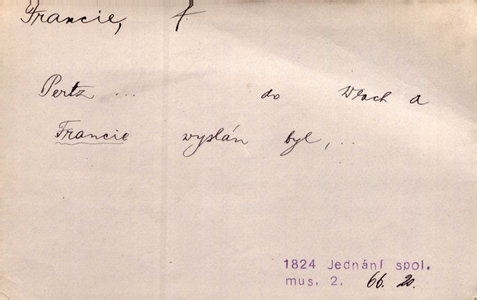 Francie, f
Pertz ... do Wlach a
Francie wyslán byl, ..
1824 Jednání spol.
mus. 2. 66. 20.